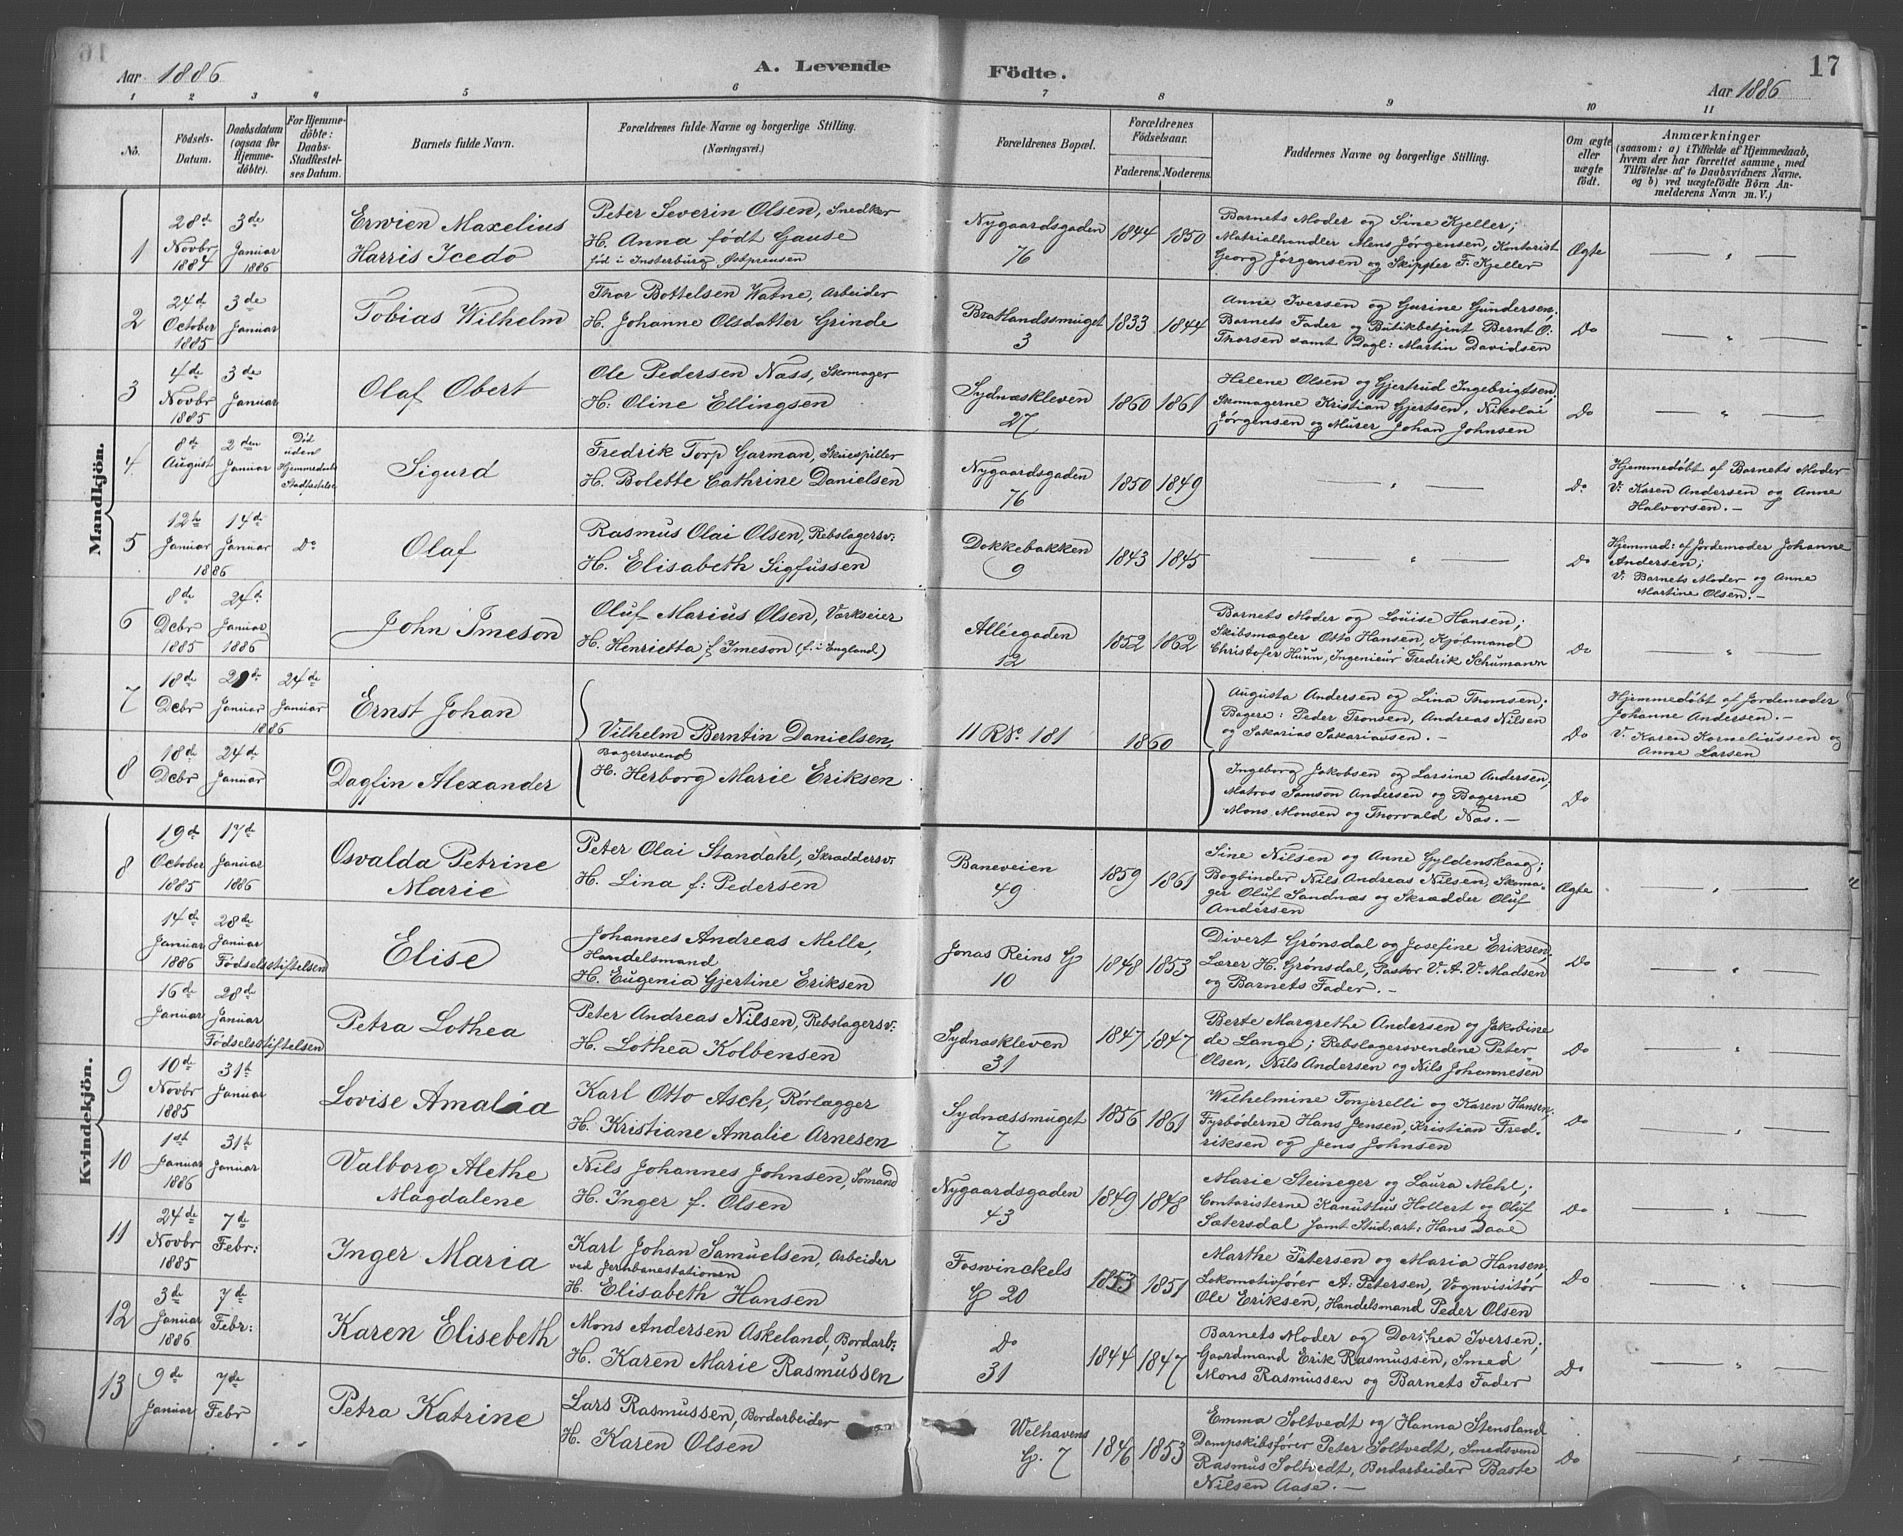 Aar 1886
A. Levende Födte.
17
Aar 1886
1 2 3 4 5 6 7 8 9 10 11
No.
Födsels-
Datum.
Daabsdatum
(ogsaa for
Hjemme-
döbte).
For Hjemme-
döbte:
Daabs-
Stadfæstel-
ses Datum.
Barnets fulde Navn.
Forældrenes fulde Navne og borgerlige Stilling.
(Næringsvei.)
Forældrenes Bopæl.
Forældrenes
Födselsaar.
Faderens. Moderens.
Faddernes Navne og borgerlige Stilling.
Om ægte
eller
uægte
födt.
Anmærkninger
(saasom: a) i Tilfælde af Hjemmedaab,
hvem der har forrettet samme, med
Tilföielse af to Daabsvidners Navne.
og b) ved uægtefödte Börn An-
melderens Navn m. V.)
Mandkjön.
1
28de
Novbr
1884
3de
Januar
1886
Erwien Maxelius
Harris Icedo
Peter Severin Olsen, Snedker
H. Anna født Gause
fød i Insterburg Østpreusen
Nygaardsgaden
76
1844 1850
Barnets Moder og Sine Kjeller;
Matrialhandler Mens Jørgensen, Kontorist
Georg Jørgensen og Skipper F. Kjeller
Ægte
2
24de
October
1885
3de
Januar
Tobias Wilhelm
Thor Bottelsen Watne, Arbeider
H. Johanne Olsdatter Grinde
Bratlandssmuget
3
1833 1844
Anne Iversen og Gurine Gundersen.
Barnets Fader og Butikbetjent Bernt O.
Thorsen samt Dagl: Martin Davidsen
Do
3
4de
Novbr
1885
3de
Januar
Olaf Obert
Ole Pedersen Næss, Skomager
H: Oline Ellingsen
Sydnæskleven
27
1860 1861
Helene Olsen og Gjertrud Ingebrigtsen,
Skomagerne Kristian Gjertsen, Nikolai
Jörgensen og Murer Johan Johnsen
Do
4
8de
August
2den
Januar
Död
uden
Hjemmedaabs
Stadfæstelse
Sigurd
Fredrik Torp Garman, Skuespiller
H. Bolette Cathrine Danielsen
Nygaardsgaden
76
1850 1849
Do
Hjemmedøbt af Barnets Moder
V: Karen Andersen og Anne
Halvorsen. -
5
12te
Januar
14de
Januar
1886
Do
Olaf
Rasmus Olai Olsen, Rebslagersv:
H. Elisabeth Sigfussen
Dokkebakken
9
1843 1845
Do
Hjemmed: af Jordemoder Johanne
Andersen;
V. Barnets Moder og Anne
Martine Olsen. -
6
8de
Debr
1885
24de
Januar
1886
John Imeson
Oluf Marius Olsen, Værkseier
H. Henrietta f. Imeson (f. i England)
Alléegaden
12
1852 1862
Barnets Moder og Louise Hansen;
Skibsmægler Otto Hansen, Kjöbmand
Christofer Huun, Ingenieur Fredrik Schumann
Do
7
18de
Debr
Januar
1886
24de
Januar
Ernst Johan
Vilhelm Berntin Danielsen,
Bagersvend
H. Herborg Marie Eriksen
11 R No 181
1860
Augusta Andersen og Lina Thomsen;
Bagere: Peder Tronsen, Andreas Nilsen
og Sakarias Sakariassen. -
Do
Hjemmedøbt af Jordemoder
Johanne Andersen. -
V. Karen Korneliussen og
Anne Larsen
8
18de
Debr
24de
Januar
Dagfin Alexander
Ingeborg Jakobsen og Larsine Andersen,
Matros Samson Andersen og Bagerne
Mons Monsen og Thorvald Næs. -
Do
Kvindekjön.
8
19de
October
1885
17de
Januar
1886
Osvalda Petrine
Marie
Peter Olai Standahl, Skræddersv:
H. Lina f: Pedersen
Baneveien
49
1859 1861
Sine Nilsen og Anne Gyldenskaag;
Bogbinder Nils Andreas Nilsen, Skoma-
ger Oluf Sandnæs og Skrædder Oluf
Andersen
Ægte
14de
Januar
1886
28de
Januar
Födselsstiftelsen
Elise
Johannes Andreas Melle,
Handelsmand
H. Eugenia Gjertine Eriksen
Jonas Reins G
10
1848 1853
Divert Grönsdal og Josefine Eriksen,
Lærer H. Grönsdal, Pastor V. A. V. Madsen
og Barnets Fader. -
Do
16de
Januar
28de
Januar
Födselsstiftelsen
Petra Lothea
Peter Andreas Nilsen, Rebslagersv:
H. Lothea Kolbensen
Sydnæskleven
31
1847 1847
Berte Margrethe Andersen og Jakobine
de Lange; Rebslagersvendene Peter
Olsen, Nils Andersen og Nils Johannesen
Do
9
10de
Novbr
1885
31te
Januar
Lovise Amalia
Karl Otto Asch, Rörlægger
H. Kristiane Amalie Arnesen
Sydnæssmuget
7
1856 1861
Wilhelmine Tonjerelli og Karen Hansen;
Fyrböderne Hans Jensen, Kristian Fred-
riksen og Jens Johnsen
Do
10
1ste
Januar
1886
31te
Januar
Valborg Alethe
Magdalene
Nils Johannes Johnsen, Sömand
H. Inger f. Olsen
Nygaardsgaden
43
1849 1848
Marie Steineger og Laura Mehl;
Contoristerne Kanuttus Hollert og Oluf
Sætersdal samt Stud: art: Hans Daae
Do
11
24de
Novbr
1885
7de
Febr:
Inger Maria
Karl Johan Samuelsen, Arbeider
ved Jernbanestationen
H. Elisabeth Hansen
Foswinckels
G 20
1853 1851
Marthe Petersen og Maria Hansen,
Lokomotivförer A. Petersen, Vognvisitör
Ole Eriksen, Handelsmand Peder Olsen
Do
12
3de
Januar
1886
7de
Febr:
Karen Elisebeth
Mons Andersen Askeland, Bordarb:
H. Karen Marie Rasmussen
Do
31
1844 1847
Barnets Moder og Dorthea Iversen;
Gaardmand Erik Rasmussen, Smed
Mons Rasmussen og Barnets Fader
Do
13
9de
Januar
7de
Febr
Petra Katrine
Lars Rasmussen, Bordarbeider
H. Karen Olsen
Welhavens
G. 7
1846 1853
Emma Soltvedt og Hanna Stensland
Dampskibsförer Peter Soltvedt, Smedsvend
Rasmus Soltvedt, Bordarbeider Baste
Nilsen Aase. -
Do